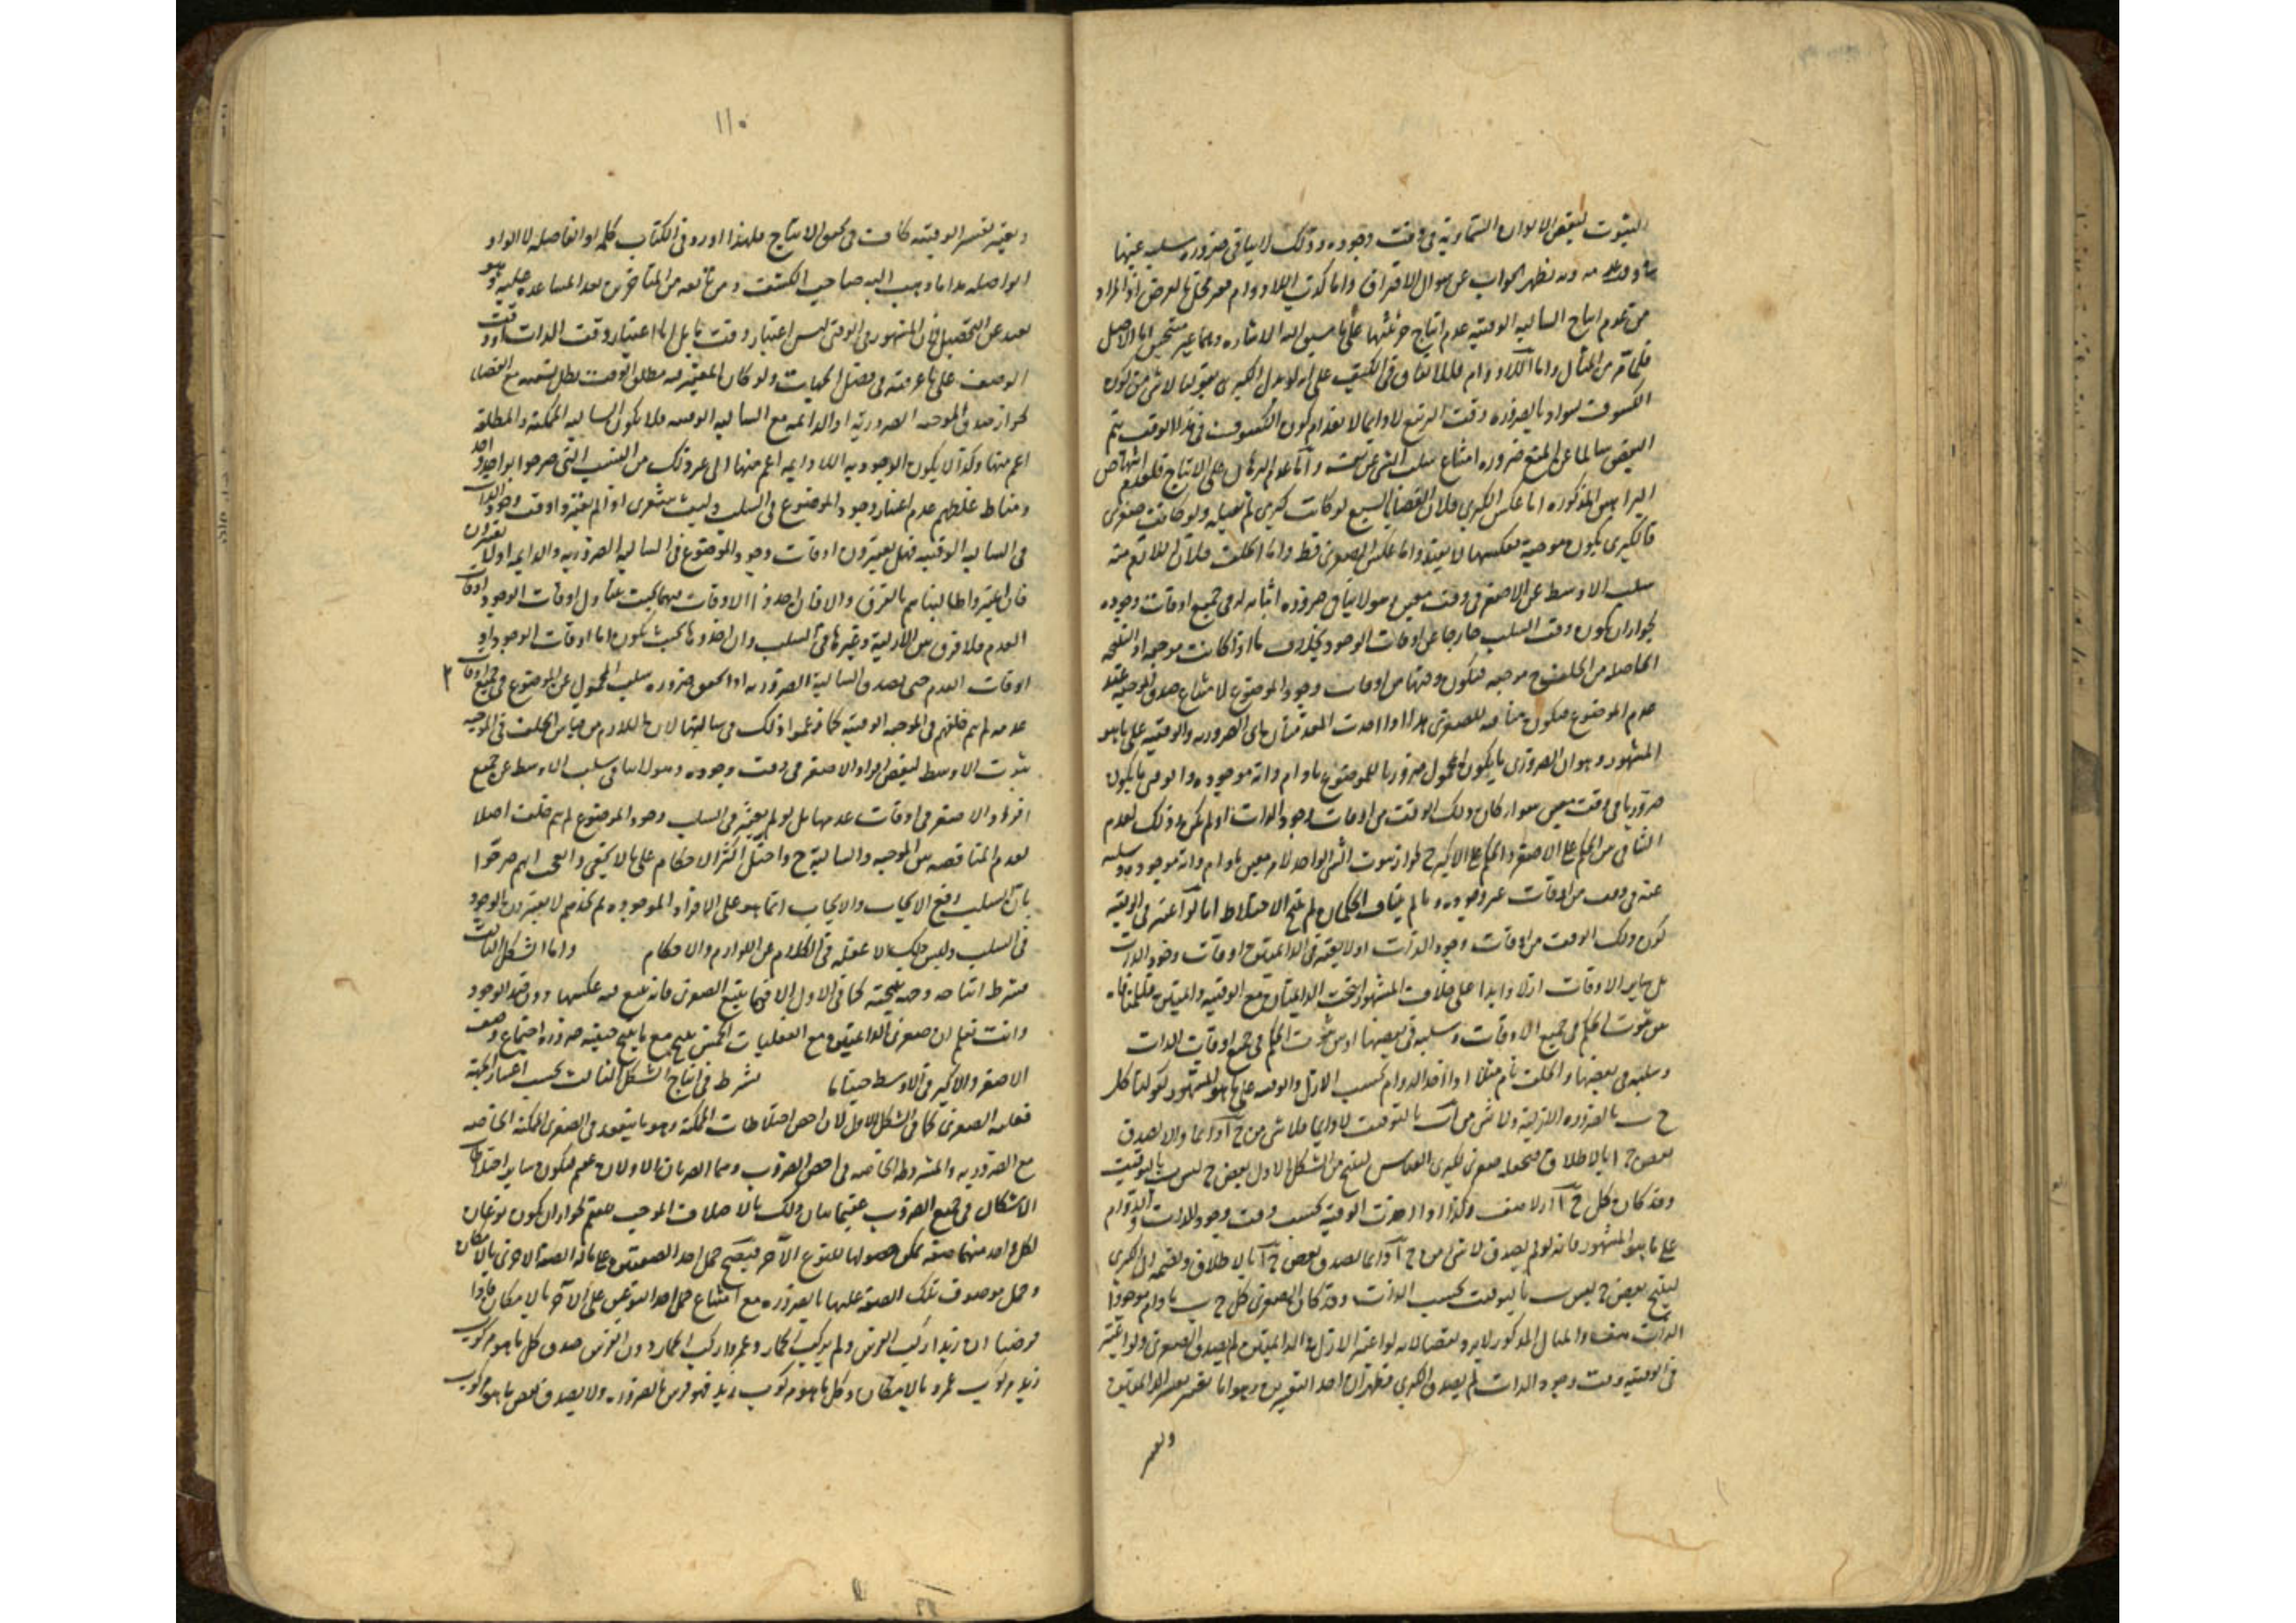 الثبوت لبعض الالوان السماوية في وقت وجوده وذلك لا ينافي ضرورة سلبه عنها
وبه يظهر الجواب عن سوال الافتراق واما كذب اللادوام
من عدم انتاج السالبة الوقتية عدم انتاج جزئيتها على ما سبق اليه الاشارة
فلما مر من المثال واما اللادوام فللاتفاق في الكيف على انه لو بدل الكبرى بقولنا لا شي من
الكسوف بسواد بالضرورة وقت التربيع لا دايما لانعدام كون الكسوف في هذا الوقت يتم
النقض سالما عن المنع ضرورة امتناع سلب الشي عن نفسه واما عدم الدلالة على الانتاج فلعدم انتهاض
البراهين المذكورة اما عكس الكبرى فلان القضايا السبع لو كانت كبرى لم تنعكس ولو كانت صغرى
فالكبرى يكون موجبة فعكسها لا يفيد واما عكس الصغرى فقط واما الخلف فلان اللازم منه
سلب الاوسط عن الاصغر في وقت معين وهو لا ينافي ضرورة اثباته له في جميع اوقات وجوده
لجواز ان يكون وقت السلب خارجا عن اوقات الوجود بخلاف ما اذا كانت موجبة اذ النتيجة
الحاصلة من الخلف ح موجبة فيكون وقتها من اوقات وجود الموضوع لامتناع صدق الموجبة عند
عدم الموضوع فيكون منافية للصغرى هذا اذا اخذت المقدمتان اي الضرورية والوقتية على ما هو
المشهور وهو ان الضروري ما يكون المحمول ضروريا للموضوع ما دام ذاته موجودة والوقتي ما يكون
ضروريا في وقت معين سواء كان ذلك الوقت من اوقات وجود الذات او لم يكن وذلك لعدم
التنافي بين الحكم على الاصغر والحكم على الاكبر ح لجواز ثبوت الشي الواحد لامر معين ما دام ذاته موجودة وسلبه
عنه في وقت من اوقات غير وجوده وما لم يتناف الحكمان لم ينتج الاختلاط اما لو اعتبر في الوقتية
كون ذلك الوقت من اوقات وجود الذات او لا يعتبر في الدايمتين اوقات وجود الذات
بل ساير الاوقات ازلا وابدا على خلاف المشهور انتجت الدايمتان مع الوقتية
بين ثبوت الحكم في جميع الاوقات وسلبه في بعضها او بين ثبوت الحكم في جميع اوقات الذات
وسلبه في بعضها والخلف تام مثلا اذا اخذ الدوام بحسب الازل والوقتية على ما هو المشهور كقولنا كل
ج ب بالضرورة الازلية ولا شي من ا ب بالتوقيت لا دايما فلا شي من ج ا دايما والا لصدق
بعض ج ا بالاطلاق فنجعله صغرى لكبرى القياس لينتج من الشكل الاول بعض ج ليس ب بالتوقيت
وقد كان كل ج ب ازلا هف وكذا اذا اخذت الوقتية بحسب وقت وجود الذات والدوام
على ما هو المشهور فانه لو لم يصدق لا شي من ج ا دايما لصدق بعض ج ا بالاطلاق ونضمه الى الكبرى
لينتج بعض ج ليس ب بالتوقيت بحسب الذات وقد كان الصغرى كل ج ب ما دام موجود
الذات هف والمثال المذكور لا يرد نقضا لانه لو اعتبر الازل في الدايمتين لم يصدق الصغرى ولو اعتبر
في الوقتية وقت وجود الذات لم يصدق الكبرى فظهر ان احد التغيرين وهو اما تغير تفسير الدايمتين
وتغير
١١٠
وتغير تفسير الوقتية كاف في تحقق الانتاج فلهذا اورد في الكتاب كلمة او الفاصلة لا الواو
الواصلة هذا ما ذهب اليه صاحب الكشف ومن تابعه من المتاخرين بعد المساعدة عليه وهو
بعيد عن التحصيل فان المشهور في الوقتي ليس اعتبار وقت ما بل اما اعتبار وقت الذات او وقت
الوصف على ما عرفته في فصل الجهات ولو كان المعتبر فيه مطلق الوقت بطل نسبته مع القضايا
لجواز صدق الموجبة الضرورية او الدايمة مع السالبة الوقتية فلا يكون السالبة الممكنة والمطلقة
اعم منها وكذا لا يكون الوجودية اللادايمة اعم منها الى غير ذلك من النسب التي صرحوا بها
ومناط غلطهم عدم اعتبار وجود الموضوع في السلب وليت شعري اذا لم يعتبروا وقت وجود الذات
في السالبة الوقتية فهل يعتبرون اوقات وجود الموضوع في السالبة الضرورية والدايمة او لا يعتبرون
فان اعتبروا طالبناهم بالفرق والا فان اخذوا الاوقات فيهما بحيث يتناول اوقات الوجود واوقات
العدم فلا فرق بين الازلية وغيرها في السلب وان اخذوها بحيث يكون اما اوقات الوجود او
اوقات العدم حتى يصدق السالبة الضرورية اذا تحقق ضرورة سلب المحمول عن الموضوع في جميع اوقات
عدمه لم يتم خلفهم في الموجبة الوقتية كما زعموا ذلك في سالبتها لان اللازم من قياس الخلف في الموجبة
ثبوت الاوسط لبعض افراد الاصغر في وقت وجوده وهو لا ينافي سلب الاوسط عن جميع
افراد الاصغر في اوقات عدمها بل لو لم يعتبر في السلب وجود الموضوع لم يتم خلف اصلا
لعدم المناقضة بين الموجبة والسالبة ح واختل اكثر الاحكام على ما لا يخفى والعجب انهم صرحوا
بان السلب رفع الايجاب والايجاب انما هو على الافراد الموجودة ثم تجدهم لا يعتبرون الوجود
في السلب وليس ذلك الا غفلة في الكلام عن اللوازم والاحكام واما الشكل الثالث
فشرط انتاجه وجهة نتيجته كما في الاول الا فيما يتبع الصغرى فانه يتبع فيه عكسها دون قيد الوجود
وانت تعلم ان صغرى الدايمتين مع الفعليات الخمس ينتج مع ما ينتج حينية ضرورة اجتماع وصف
الاصغر والاكبر في الاوسط حينا ما يشترط في انتاج الشكل الثالث بحسب اعتبار الجهة
فعلية الصغرى كما في الشكل الاول لان اخص اختلاطات الممكنة وهو ما ينعقد من الصغرى الممكنة الخاصة
مع الضرورية والمشروطة الخاصة في اخص الضروب وهما الضربان الاولان عقيم فيكون ساير اختلاطات
الاشكال في جميع الضروب عقيما بيان ذلك بالاختلاف الموجب للعقم لجواز ان يكون نوعان
لكل واحد منهما صفة يمكن حصولها للنوع الآخر فيصح حمل احد الصفتين على ما له الصفة الاخرى بالامكان
وحمل موصوف تلك الصفة عليها بالضرورة مع امتناع حمل احد النوعين على الآخر بالامكان فاذا
فرضنا ان زيدا ركب الفرس ولم يركب الحمار وعمروا ركب الحمار دون الفرس صدق كل ما هو مركوب
زيد مركوب عمرو بالامكان وكل ما هو مركوب زيد فهو فرس بالضرورة ولا يصدق بعض ما هو مركوب